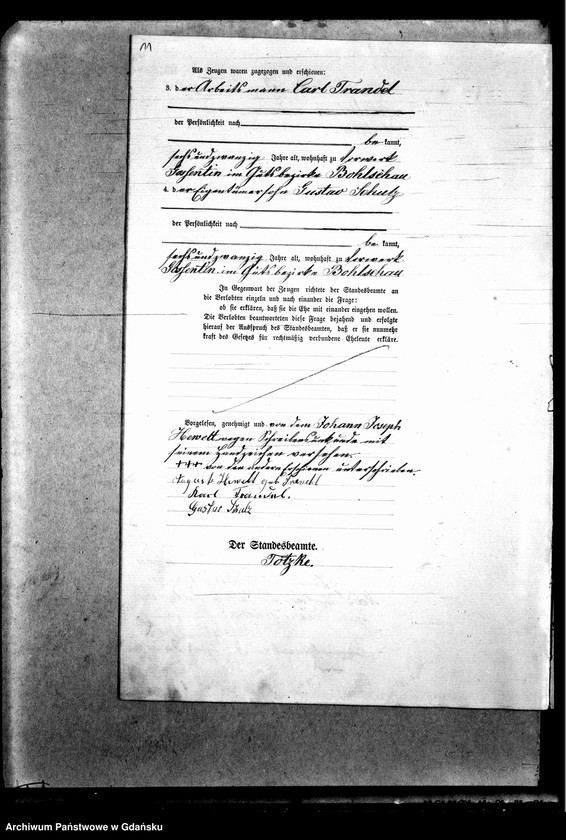 11
Als Zeugen waren zugezogen und erschienen:
3. der Arbeitsmann Carl Trandel
der Persönlichkeit nach
be kannt,
sechsundzwanzig Jahre alt, wohnhaft zu Vorwerk
im Gutsbezirke Bohlschau
4. der Eigentümersohn Gustav Schulz
der Persönlichkeit nach
be kannt,
sechsundzwanzig Jahre alt, wohnhaft zu Vorwerk
im Gutsbezirke Bohlschau
In Gegenwart der Zeugen richtete der Standesbeamte an
die Verlobten einzeln und nach einander die Frage:
ob sie erklären, daß sie die Ehe mit einander eingehen wollen.
Die Verlobten beantworteten diese Frage bejahend und erfolgte
hierauf der Ausspruch des Standesbeamten, daß er sie nunmehr
kraft des Gesetzes für rechtmäßig verbundene Eheleute erkläre.
Vorgelesen, genehmigt und von dem Johann Joseph
Hewelt wegen Schreibensunkunde mit
seinem Handzeichen versehen.
+++ von den andern Erschienenen unterschrieben.
Hewelt geb Trandel
Karl Trandel.
Gustav Schulz
Der Standesbeamte.
Totzke.
Archiwum Państwowe w Gdańsku